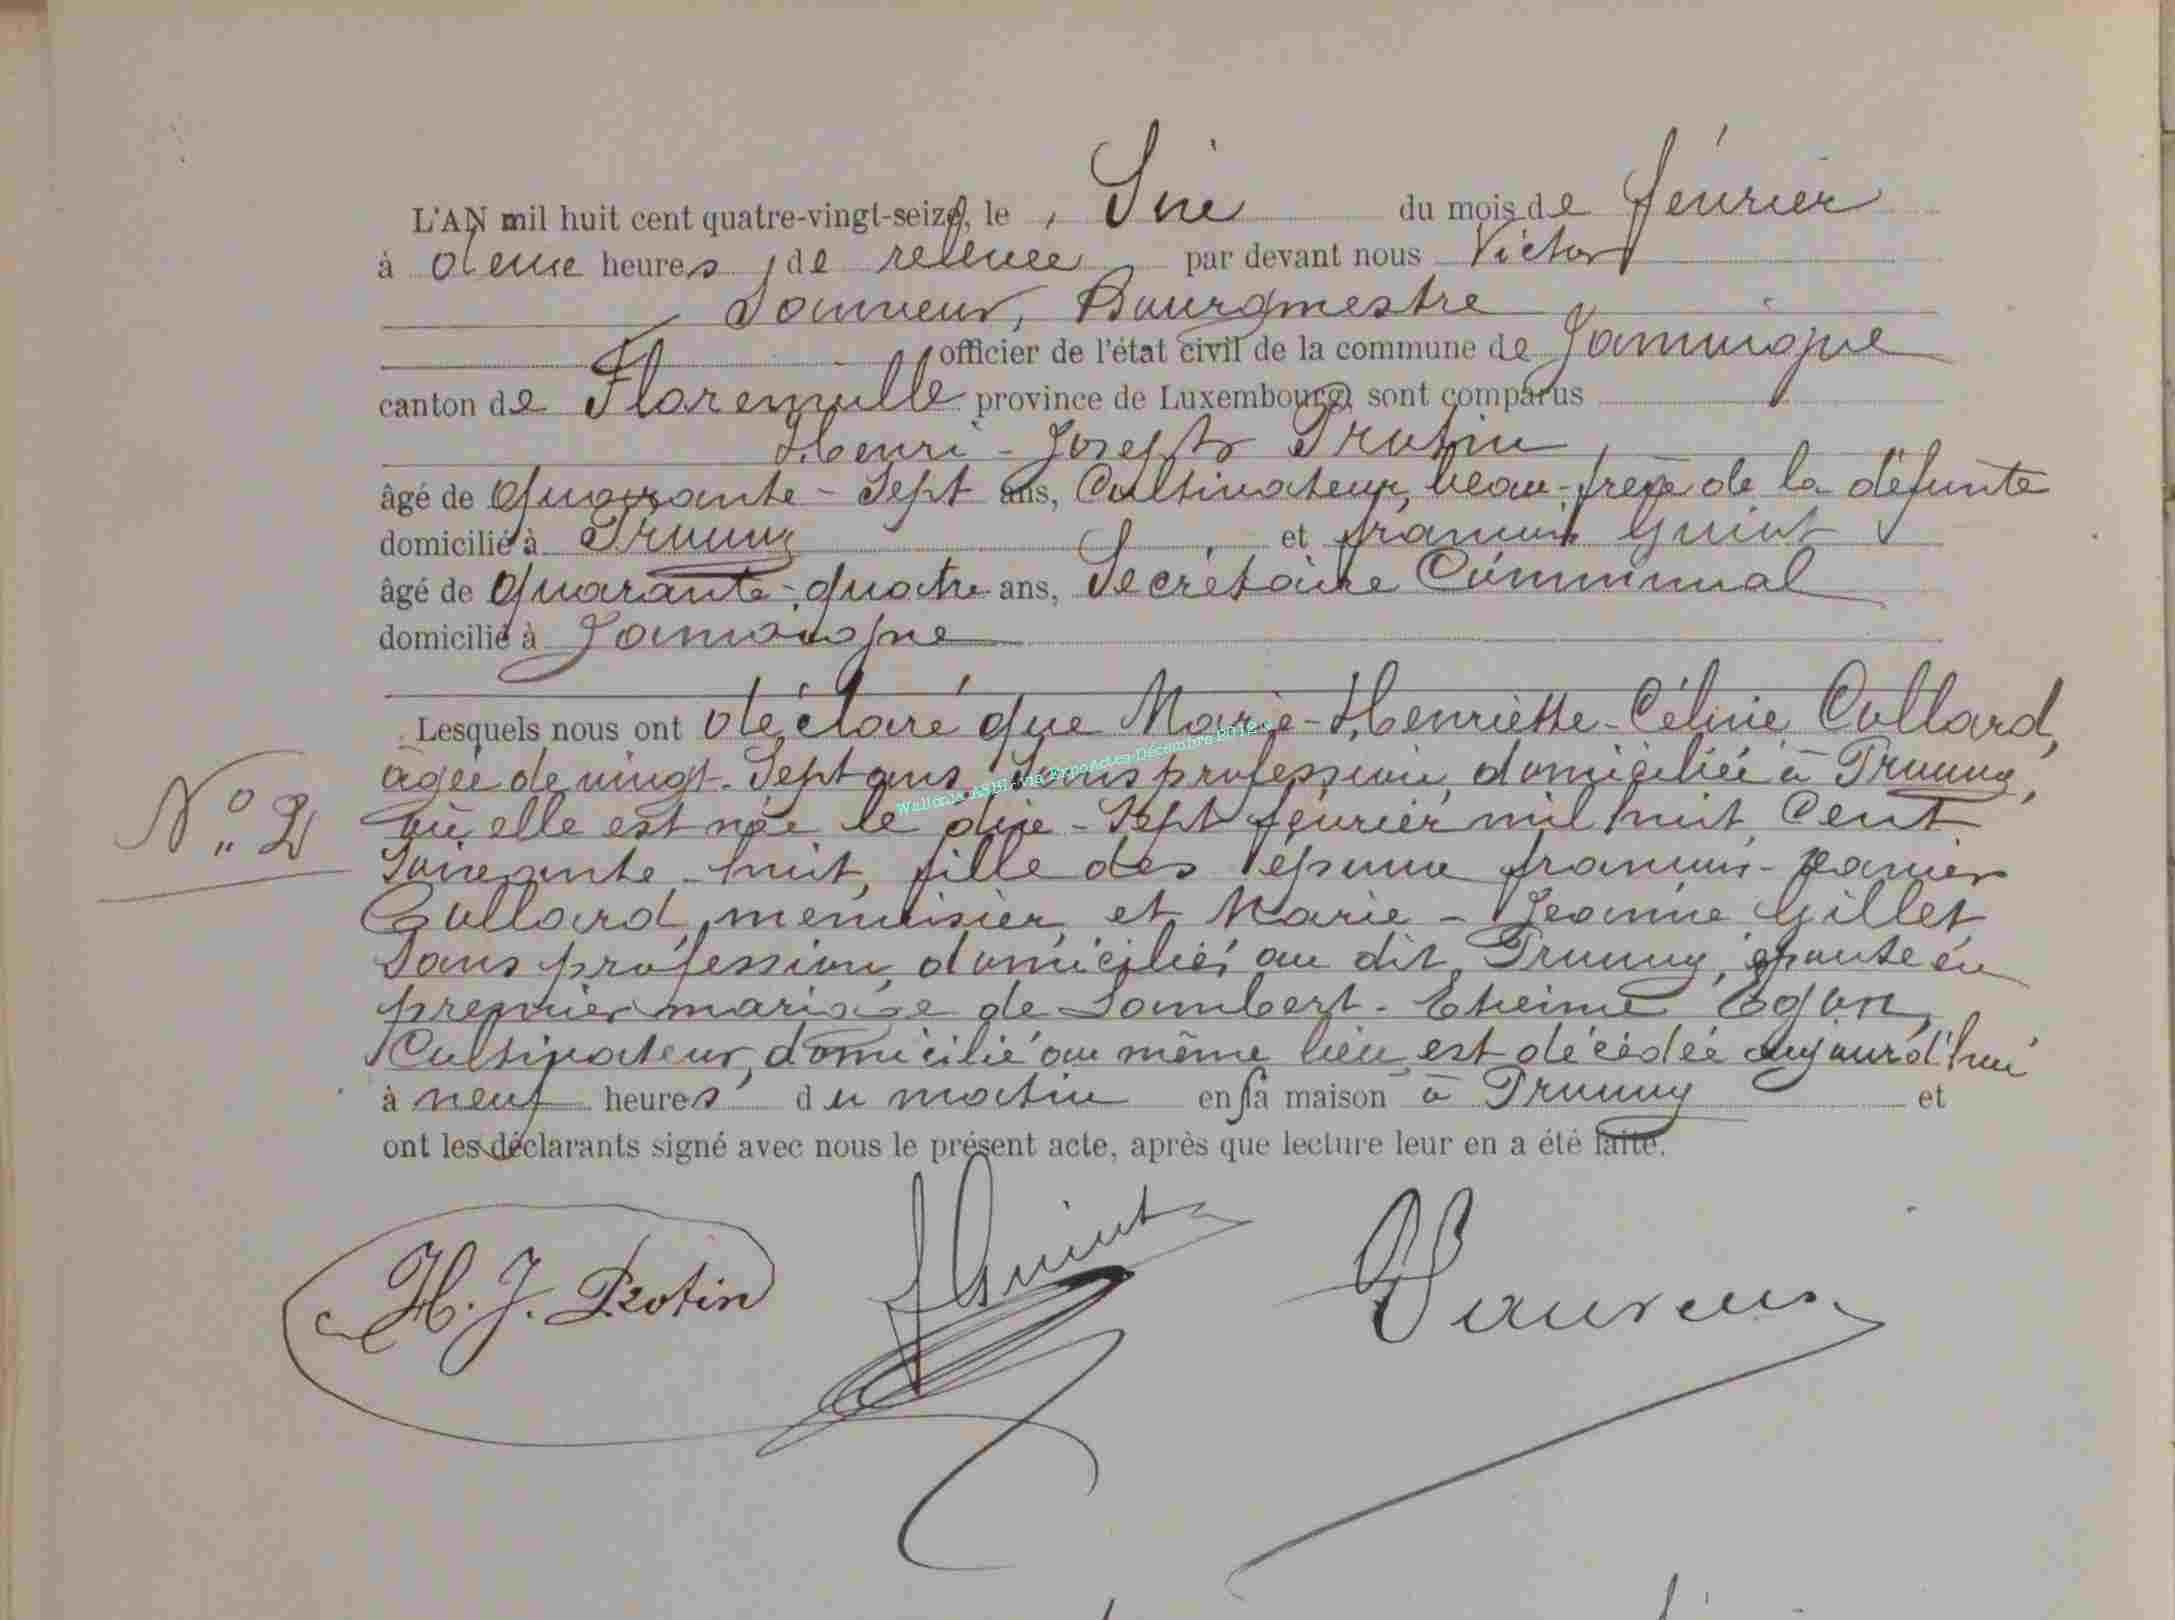 L'AN mil huit cent quatre-vingt-seize, le Six du mois de février
à deux heures de relevée par devant nous Victor
Sauveur, Bourgmestre
officier de l'état civil de la commune de Jamoigne
canton de Florenville province de Luxembourg sont comparus
Henri-Joseph Protin
âgé de quarante-Sept ans, Cultivateur, beau-frère de la défunte
domicilié à Prouvy et françois Guiot
âgé de quarante-quatre ans, Secrétaire Communal
domicilié à Jamoigne
Lesquels nous ont déclaré que Marie-Henriette-Céline Collard,
âgée de vingt-Sept ans, Sans profession, domiciliée à Prouvy,
N° 2 où elle est née le dix-Sept février mil huit Cent
Soixante-huit, fille des époux françois-xavier
Collard, menuisier, et Marie-Jeanne Gillet
Sans profession, domiciliés au dit Prouvy, épouse en
premier mariage de Lambert-Etienne Egon,
Cultivateur, domicilié au même lieu est décédée aujourd'hui
à neuf heures du matin en sa maison à Prouvy et
ont les déclarants signé avec nous le présent acte, après que lecture leur en a été faite.
H. J. Protin f Guiot V Sauveur
Wallonia ASBL via ExpoActes Décembre 2012